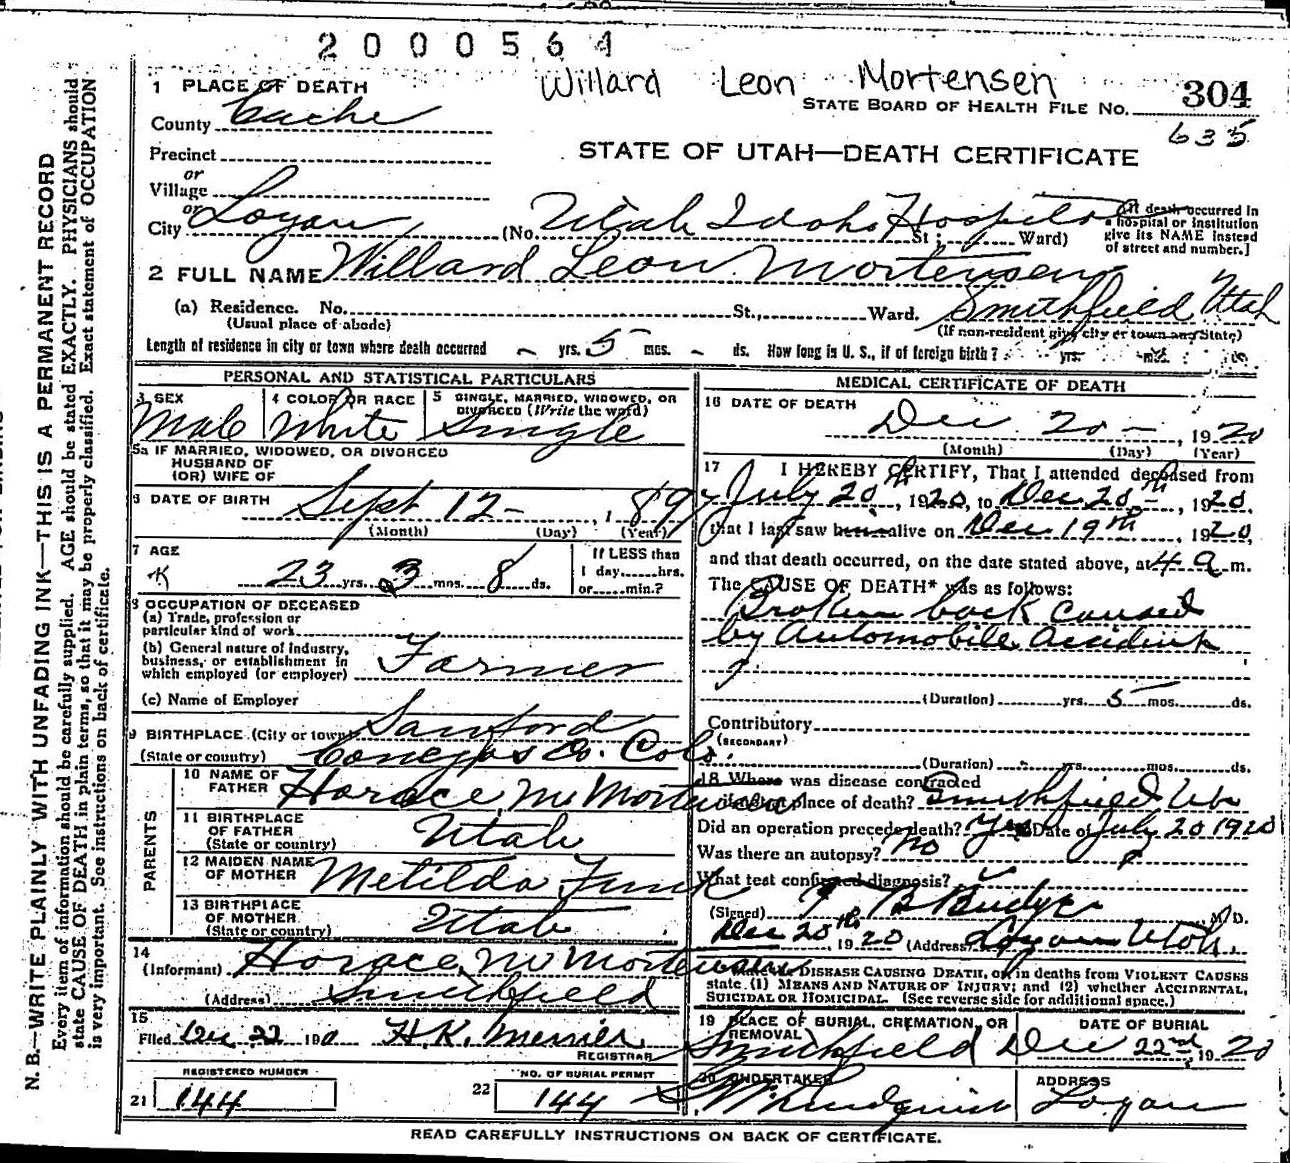 2000564
Willard Leon Mortensen
1 PLACE OF DEATH
STATE BOARD OF HEALTH FILE No. 304
635
County Cache
STATE OF UTAH—DEATH CERTIFICATE
Precinct
or
Village
or
City Logan (No. Utah Idaho Hospital St; Ward)
[If death occurred in
a hospital or institution
give its NAME instead
of street and number.]
2 FULL NAME Willard Leon Mortensen
(a) Residence. No. St., Ward. Smithfield Utah
(Usual place of abode)
(If non-resident give city or town and State)
Length of residence in city or town where death occurred - yrs. 5 mos. - ds. How long in U. S., if of foreign birth? yrs. mos. ds.
PERSONAL AND STATISTICAL PARTICULARS
3 SEX Male
4 COLOR OR RACE White
5 SINGLE, MARRIED, WIDOWED, OR
DIVORCED (Write the word)
Single
5a IF MARRIED, WIDOWED, OR DIVORCED
HUSBAND OF
(OR) WIFE OF
6 DATE OF BIRTH Sept 12 - , 1897
(Month) (Day) (Year)
7 AGE
23 yrs. 3 mos. 8 ds.
If LESS than
1 day......hrs.
or......min.?
8 OCCUPATION OF DECEASED
(a) Trade, profession or
particular kind of work
(b) General nature of Industry,
business, or establishment in
which employed (or employer) Farmer
(c) Name of Employer
9 BIRTHPLACE (City or town) Sanford
(State or country) Conejos Co. Colo.
PARENTS
10 NAME OF
FATHER Horace M Mortensen
11 BIRTHPLACE
OF FATHER
(State or country) Utah
12 MAIDEN NAME
OF MOTHER Metilda Funk
13 BIRTHPLACE
OF MOTHER
(State or country) Utah
14
(Informant) Horace M Mortensen
(Address) Smithfield
15
Filed Dec 22 190 H.K. Merrill
REGISTRAR
REGISTERED NUMBER
21 144
NO. OF BURIAL PERMIT
22 144
MEDICAL CERTIFICATE OF DEATH
16 DATE OF DEATH
Dec 20 - , 1920
(Month) (Day) (Year)
17 I HEREBY CERTIFY, That I attended deceased from
July 20th, 1920, to Dec 20th -, 1920.
that I last saw him alive on Dec 19th, 1920,
and that death occurred, on the date stated above, at 4 a m.
The CAUSE OF DEATH* was as follows:
Broken back caused
by Automobile Accident
(Duration) yrs. 5 mos. ds.
Contributory
(SECONDARY)
(Duration) yrs. mos. ds.
18 Where was disease contracted
if not at place of death? Smithfield Ut
Did an operation precede death? Yes Date of July 20 1920
Was there an autopsy? No
What test confirmed diagnosis?
(Signed) Budge M. D.
Dec 20th, 1920 (Address) Logan Utah.
DISEASE CAUSING DEATH, or in deaths from VIOLENT CAUSES
state (1) MEANS AND NATURE OF INJURY; and (2) whether ACCIDENTAL,
SUICIDAL OR HOMICIDAL. (See reverse side for additional space.)
19 PLACE OF BURIAL, CREMATION, OR
REMOVAL Smithfield
DATE OF BURIAL
Dec 22nd, 1920
20 UNDERTAKER
Lundquist
ADDRESS
Logan
READ CAREFULLY INSTRUCTIONS ON BACK OF CERTIFICATE.
N. B.—WRITE PLAINLY WITH UNFADING INK—THIS IS A PERMANENT RECORD
Every item of information should be carefully supplied. AGE should be stated EXACTLY. PHYSICIANS should
state CAUSE OF DEATH in plain terms, so that it may be properly classified. Exact statement of OCCUPATION
is very important. See instructions on back of certificate.